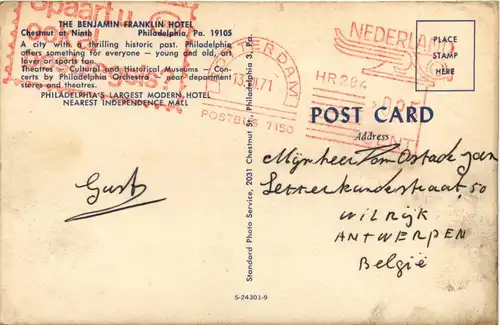 Spaart u
ook al
THE BENJAMIN FRANKLIN HOTEL
Chestnut at Ninth Philadelphia, Pa. 19105
A city with a thrilling historic past. Philadelphia
offers something for everyone - young and old, art
lover or sports fan.
Theatres - Cultural and Historical Museums - Con-
certs by Philadelphia Orchestra - near department
stores and theatres.
PHILADELPHIA'S LARGEST MODERN HOTEL
NEAREST INDEPENDENCE MALL
Gust
Standard Photo Service, 2031 Chestnut St., Philadelphia 3, Pa.
S-24301-9
71
POSTBUS 7150
NEDERLAND
HR284
CENT
PLACE
STAMP
HERE
POST CARD
Address
Mijnheer Tom Ostade jan
Letterkundestraat, 50
WILRIJK
ANTWERPEN
België